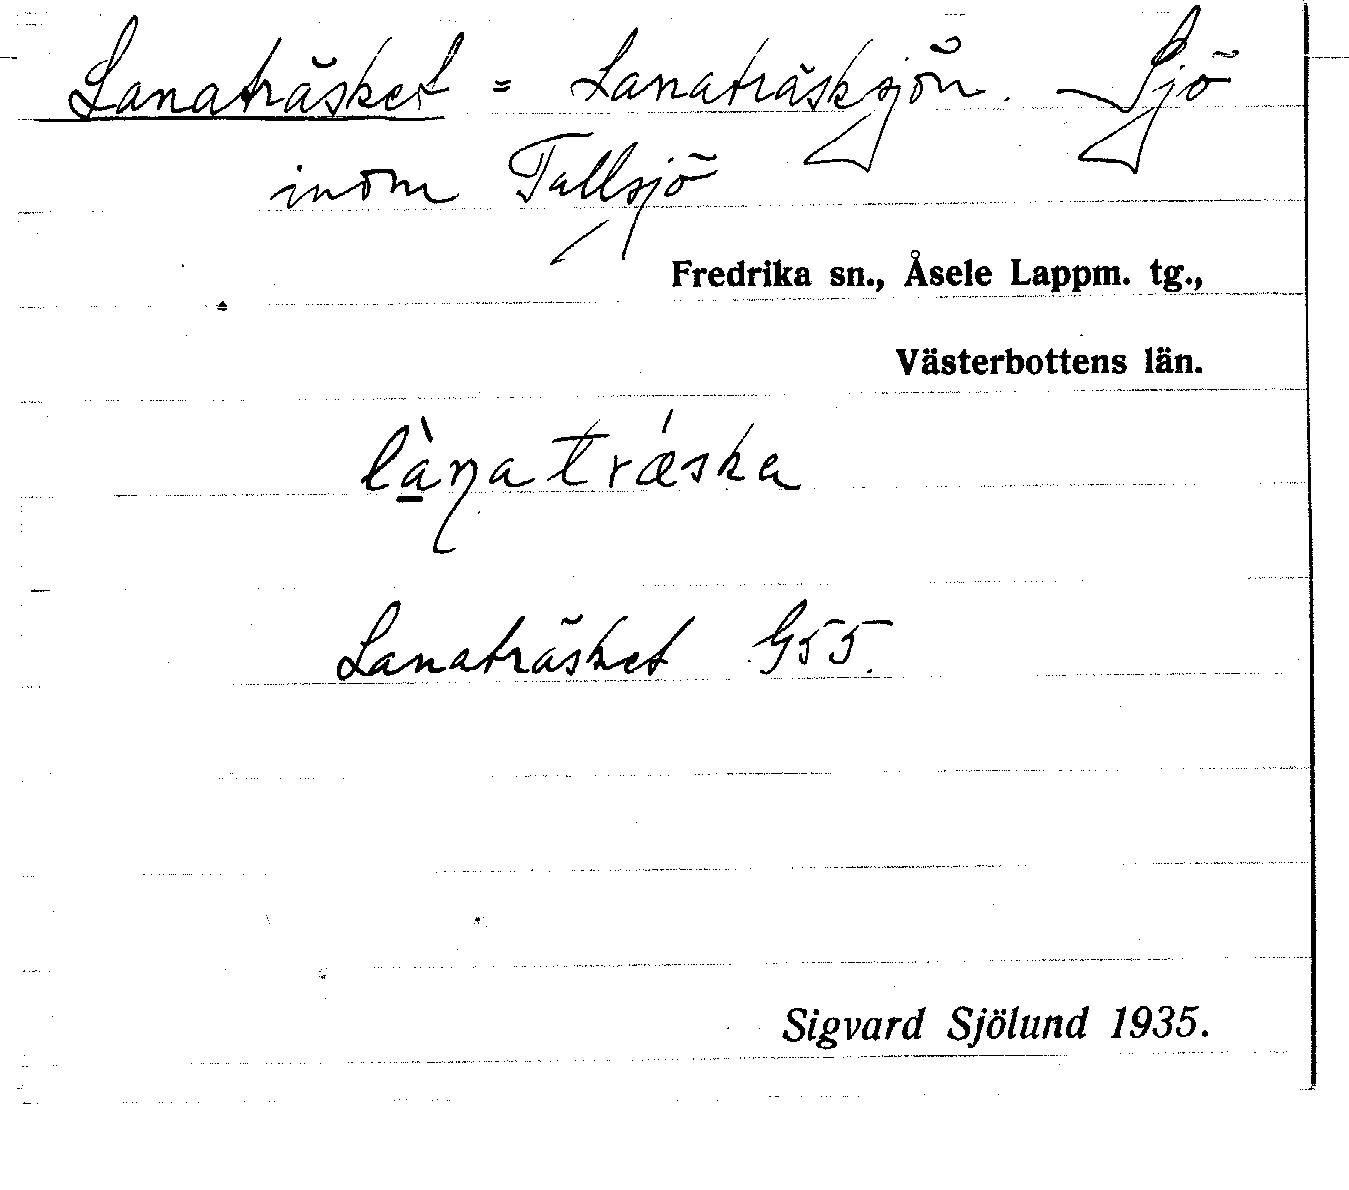 Lanaträsket = Lanaträsksjön. Sjö
inom Tallsjö
Fredrika sn., Åsele Lappm. tg.,
Västerbottens län.
là̱ŋa trǽska
Lanaträsket G55.
Sigvard Sjölund 1935.